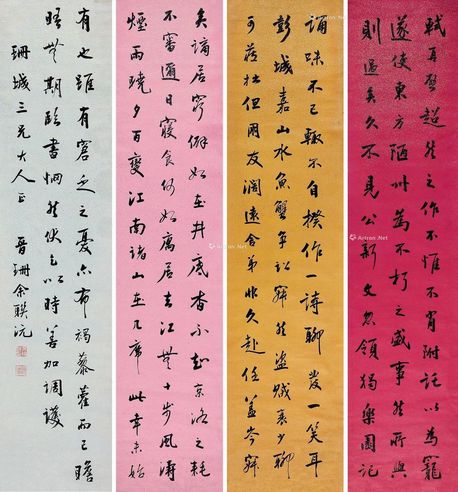 軾再啟超然之作不惟不肖附託以為寵
遂使東方陋州為不朽之盛事然所與
則過矣久不見公新文忽領獨樂園記
誦味不已輒不自揆作一詩聊發一笑耳
彭城嘉山水魚蟹爭訟寂然盜賊衰少聊
可藏拙但朋友闊遠舍弟非久赴任益岑寂
矣謫居窮僻如在井底杳不知京洛之耗
不審邇日寢食何如寓居去江無十步風濤
煙雨曉夕百變江南諸山在几席此幸未始
有也雖有窘乏之憂亦布褐藜藿而已瞻
晤無期臨書惘然伏乞以時善加調護
珊城三兄大人正 晉珊余聯沅
Artron.Net